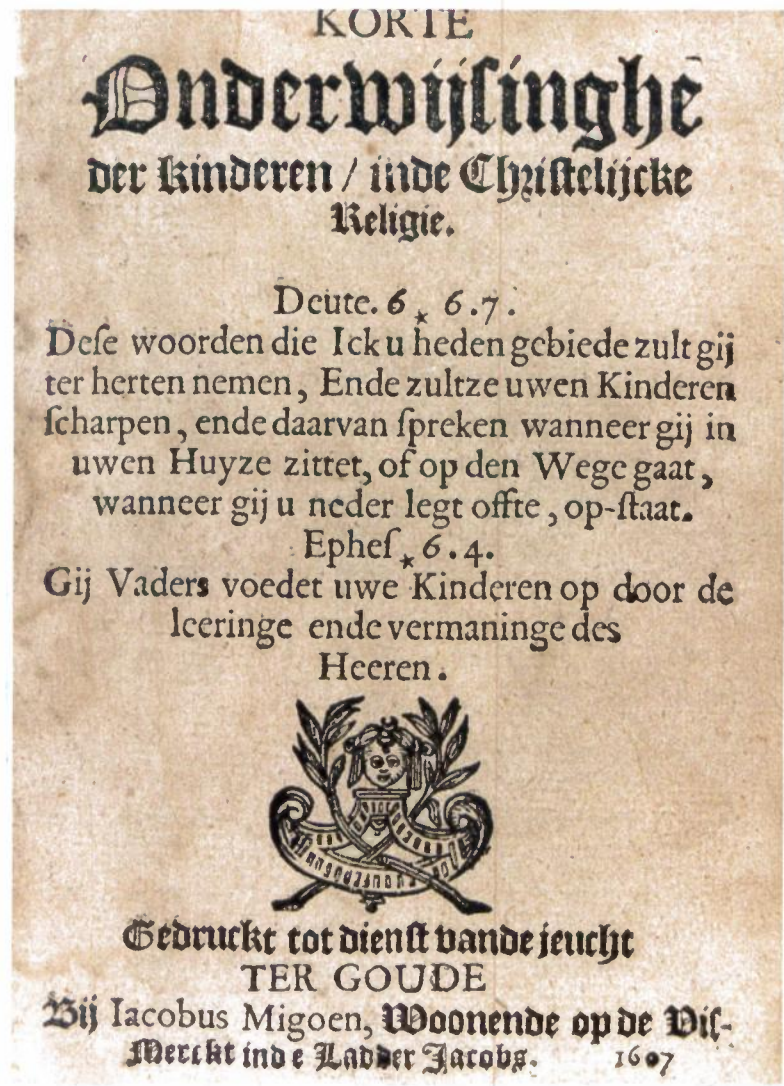 KORTE
Onderwijſinghe
der kinderen / inde Chriſtelijcke
Religie.
Deute. 6 * 6.7.
Deſe woorden die Ick u heden gebiede zult gij
ter herten nemen, Ende zultze uwen Kinderen
ſcharpen, ende daarvan ſpreken wanneer gij in
uwen Huyze zittet, of op den Wege gaat,
wanneer gij u neder legt offte, op-ſtaat.
Epheſ * 6.4.
Gij Vaders voedet uwe Kinderen op door de
leeringe ende vermaninge des
Heeren.
Gedruckt tot dienſt vande jeucht
TER GOUDE
Bij Iacobus Migoen, Woonende op de Viſ-
Merckt inde Ladder Jacobs. 1607